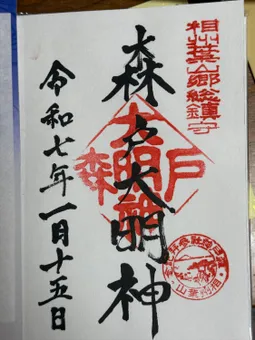 相州葉山郷総鎮守
森戸大明神
令和七年一月十五日
森 戸